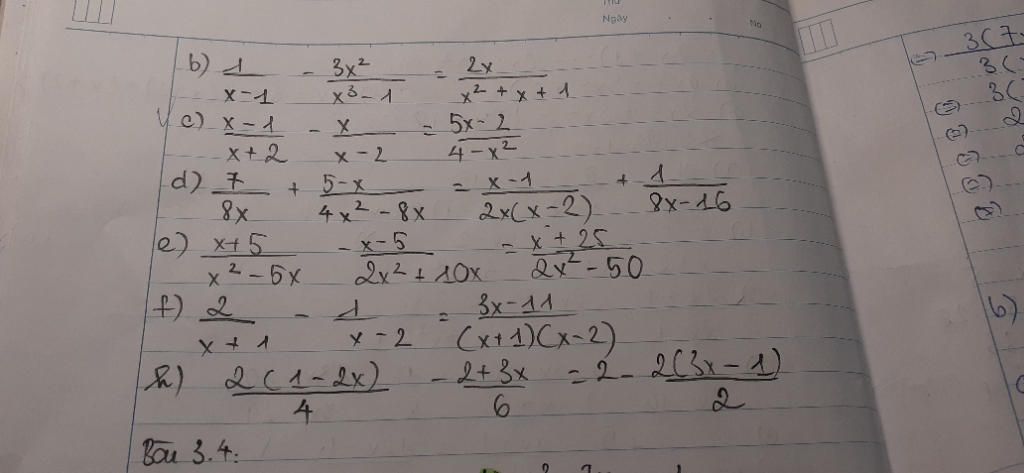 Thứ
Ngày No
b) 1/(x-1) - 3x²/(x³-1) = 2x/(x²+x+1)
c) (x-1)/(x+2) - x/(x-2) = (5x-2)/(4-x²)
d) 7/(8x) + (5-x)/(4x²-8x) = (x-1)/(2x(x-2)) + 1/(8x-16)
e) (x+5)/(x²-5x) - (x-5)/(2x²+10x) = (x+25)/(2x²-50)
f) 2/(x+1) - 1/(x-2) = (3x-11)/((x+1)(x-2))
h) 2(1-2x)/4 - (2+3x)/6 = 2 - 2(3x-1)/2
Bài 3.4:
(=) 3(7
3(
(=) 3(
(=) 2
(=)
(=)
(=)
b)